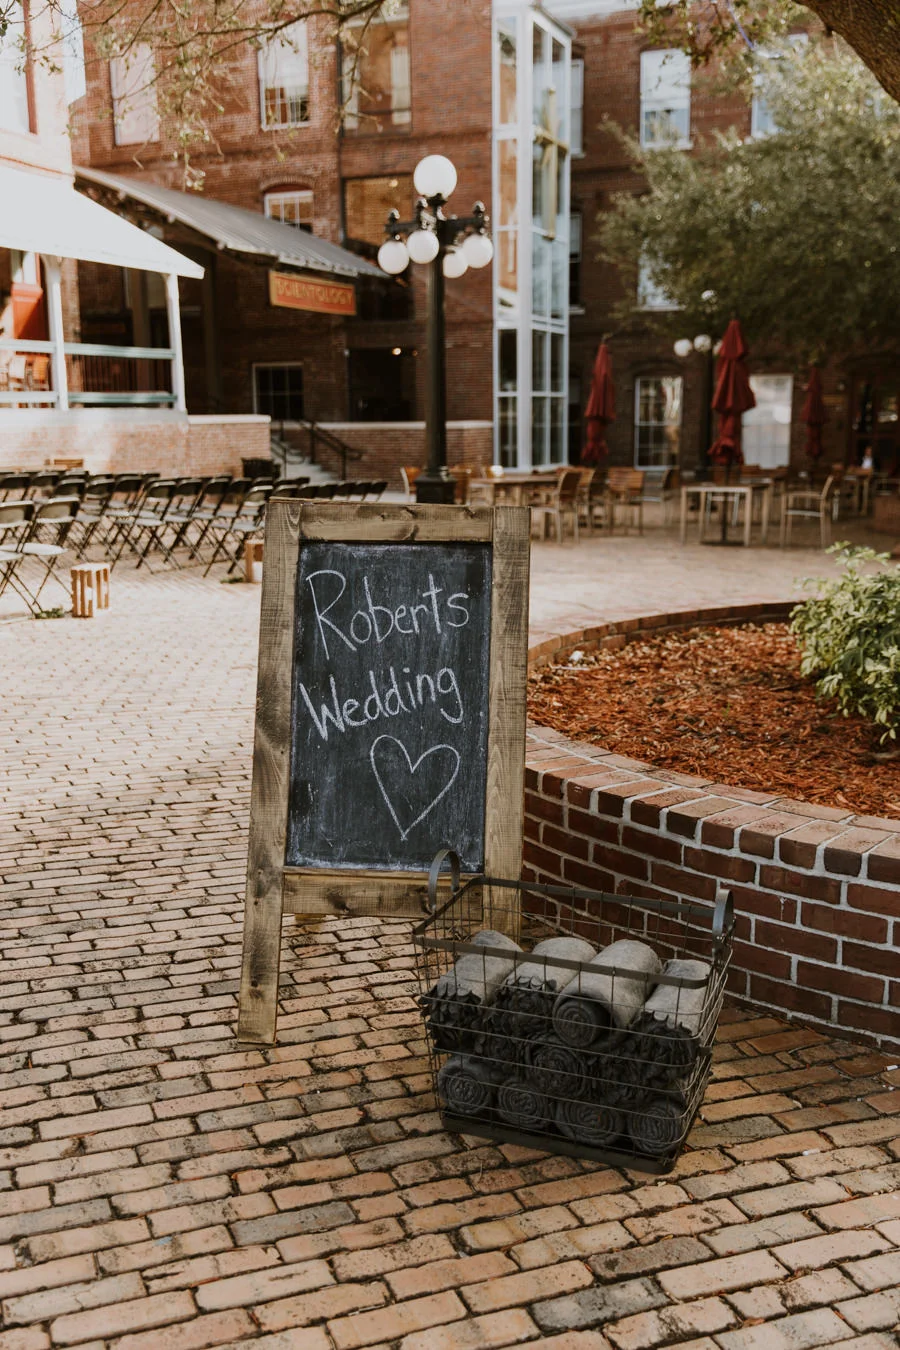 SCIENTOLOGY
Roberts
Wedding